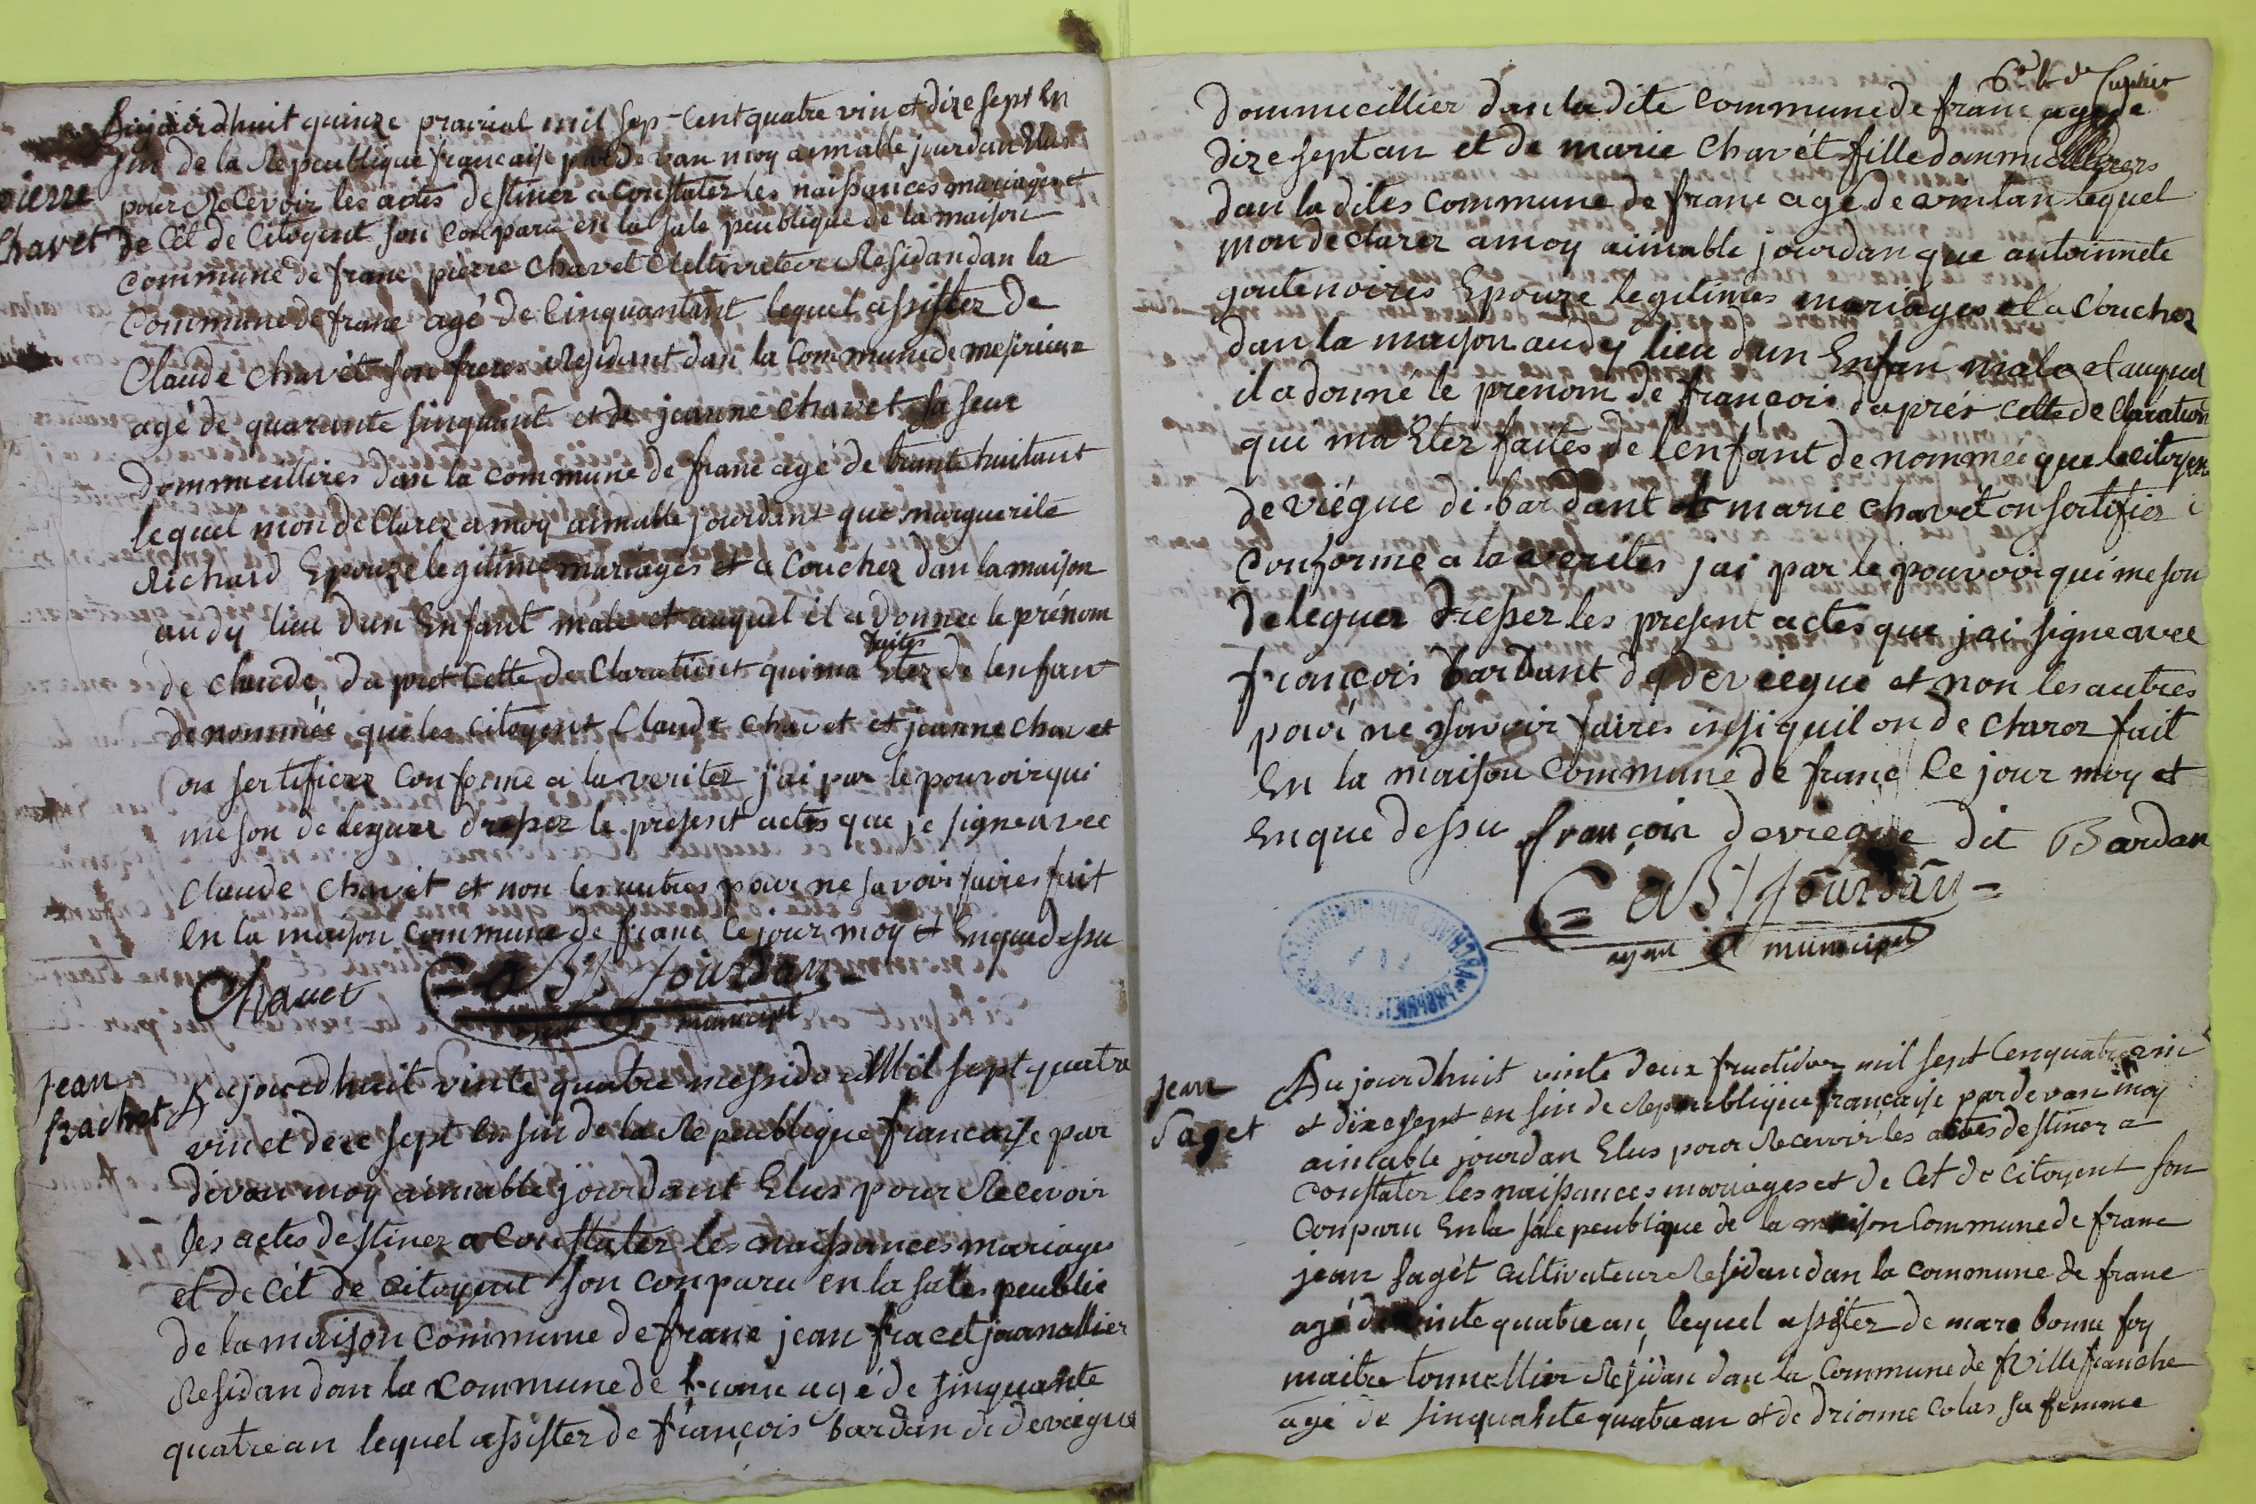 Aujourdhuit quinze prairial mil sept-Cent quatre vin et dize sept En
sin de la Republique francaise par devan moy aimable jourdan Elus
pierre
pour Recevoir les actes destiner a Constater les naissances mariages et
Chavet
de Cet de Citoyent son Conparu en la sale peublique de la maison
Commune de franc pierre Chavet Cultivateur Residan dan la
Commune de franc agé de Cinquantant lequel assister de
Claude Chavét son freres Residant dan la Commune de
agé de quarante sinquant et de jeanne Chavet sa seur
dommicillires dan la commune de franc agé de trante huitant
lequel mon de Clarez a moy aimable jourdant que marguerite
Richard Epouze legitime mariages et a Couchez dan la maison
au dy lieu dun Enfant male et auquel il a donnee le prénom
de claude da pret Cette de Claratient qui ma Etez faites de lenfant
denommée que les Citoyent Claude Chavet et jeanne Chavet
on sertifiez Conforme a la veritez j'ai par le pouvoir qui
me son deleguez dressez le present actes que je signe avec
Claude Chavét et non les autres pour ne savoir faires fait
En la maison Commune de franc le jour moy et Enque dessu
Chavet
Jourdan
municipal
jean
frachet
Aujourdhuit vinte quatre messidor Mil sept quatre
vin et dece sept En sin de la Republique francaise par
devan moy aimable jourdant Elus pour Recevoir
les actes destinez a Constater les naissances mariages
et de Cét de Citoyent son Conparu en la sales peublic
de la maison Commune de franc jean fracet journallier
Residan dan la Commune de franc agé de sinquante
quatre an lequel assister de françois bardan di deviegue
dommicillier dan la dite Commune de franc age de
dize sept an et de marie Chavét fille dommicilliers
dan la dites Commune de franc agé de vintan lequel
mon de Clarez a moy aimable jourdan que antoinnete
goutenoires Epouze legitimes mariages et a Couchez
dan la maison au dy lieu dun Enfan male et auquel
il a donné le prenom de françois daprés cette de Claration
qui ma Etez faites de lenfant denommée que le citoyen
deviégue di bardant et marie Chavét on sertifier
Conforme a la verites j'ai par le pouvoir qui me son
deleguer dressez les present actes que j'ai signe avec
françois bardant dy deviegue et non les autres
pour ne savoir faires insi quil on de Clarez fait
En la maison Commune de franc le jour moy et
Enque dessu françois deviegue dit Bardan
Jourdan
agent municipal
jean
saget
Aujourdhuit vinte deux fructidor mil sept Cenquatre vin
et dixe sept en sin de Republique francaise par devan moy
aimable jourdan Elus pour Recevoir les actes destiner a
Constater les naissances mariages et de Cet de Citoyent son
Conparu En la sale peublique de la maison Commune de franc
jean sagét Cultivateur Residan dan la commune de franc
agé de vinte quatre an lequel assister de marc bonne foy
maitre tonnellier Residan dan la Commune de Ville franche
agé de sinquante quatre an et de drionne Colas sa femme